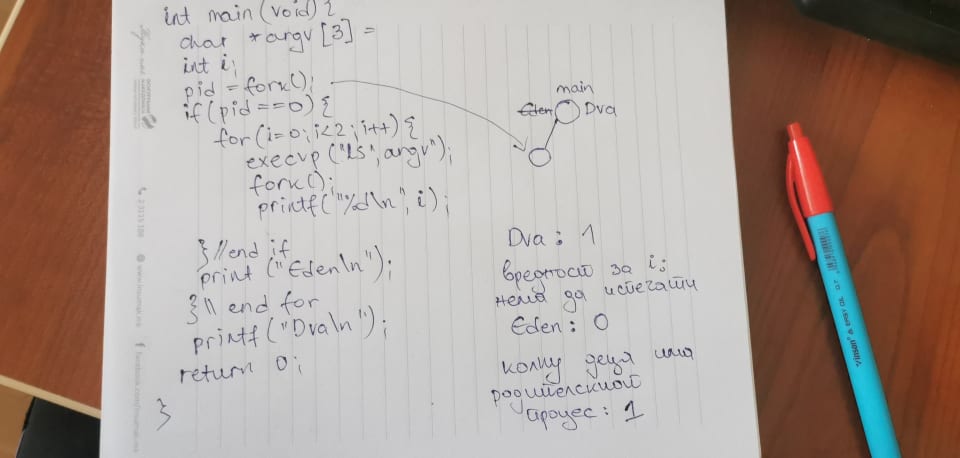 int main (void) {
char *argv [3] =
int i;
pid = fork();
if (pid ==0) {
for (i=0; i<2; i++) {
execvp ("ls", argv");
fork();
printf("%d\n", i);
} //end if
print ("Eden\n");
} \\ end for
printf ("Dva\n");
return 0;
}
main
Eden Dva
Dva: 1
вредност за i:
нема да испечати
Eden: 0
колку деца има
родителскиот
процес: 1